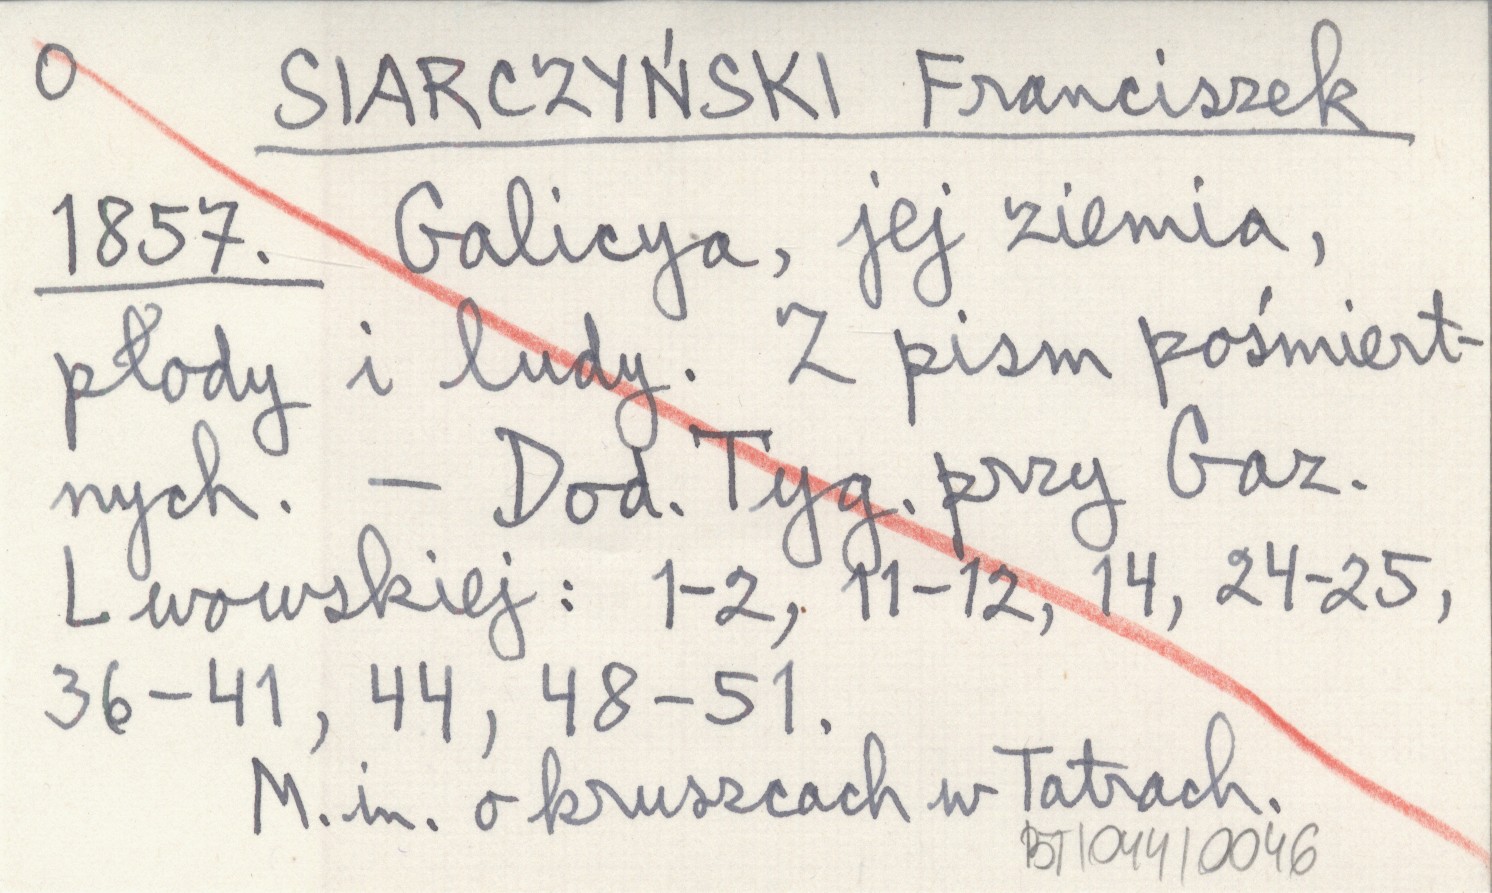 O SIARCZYŃSKI Franciszek
1857. Galicya, jej ziemia,
płody i ludy. Z pism pośmiert-
nych. – Dod. Tyg. przy Gaz.
Lwowskiej: 1-2, 11-12, 14, 24-25,
36-41, 44, 48-51.
M. in. o kruszcach w Tatrach.
BT/044/0046